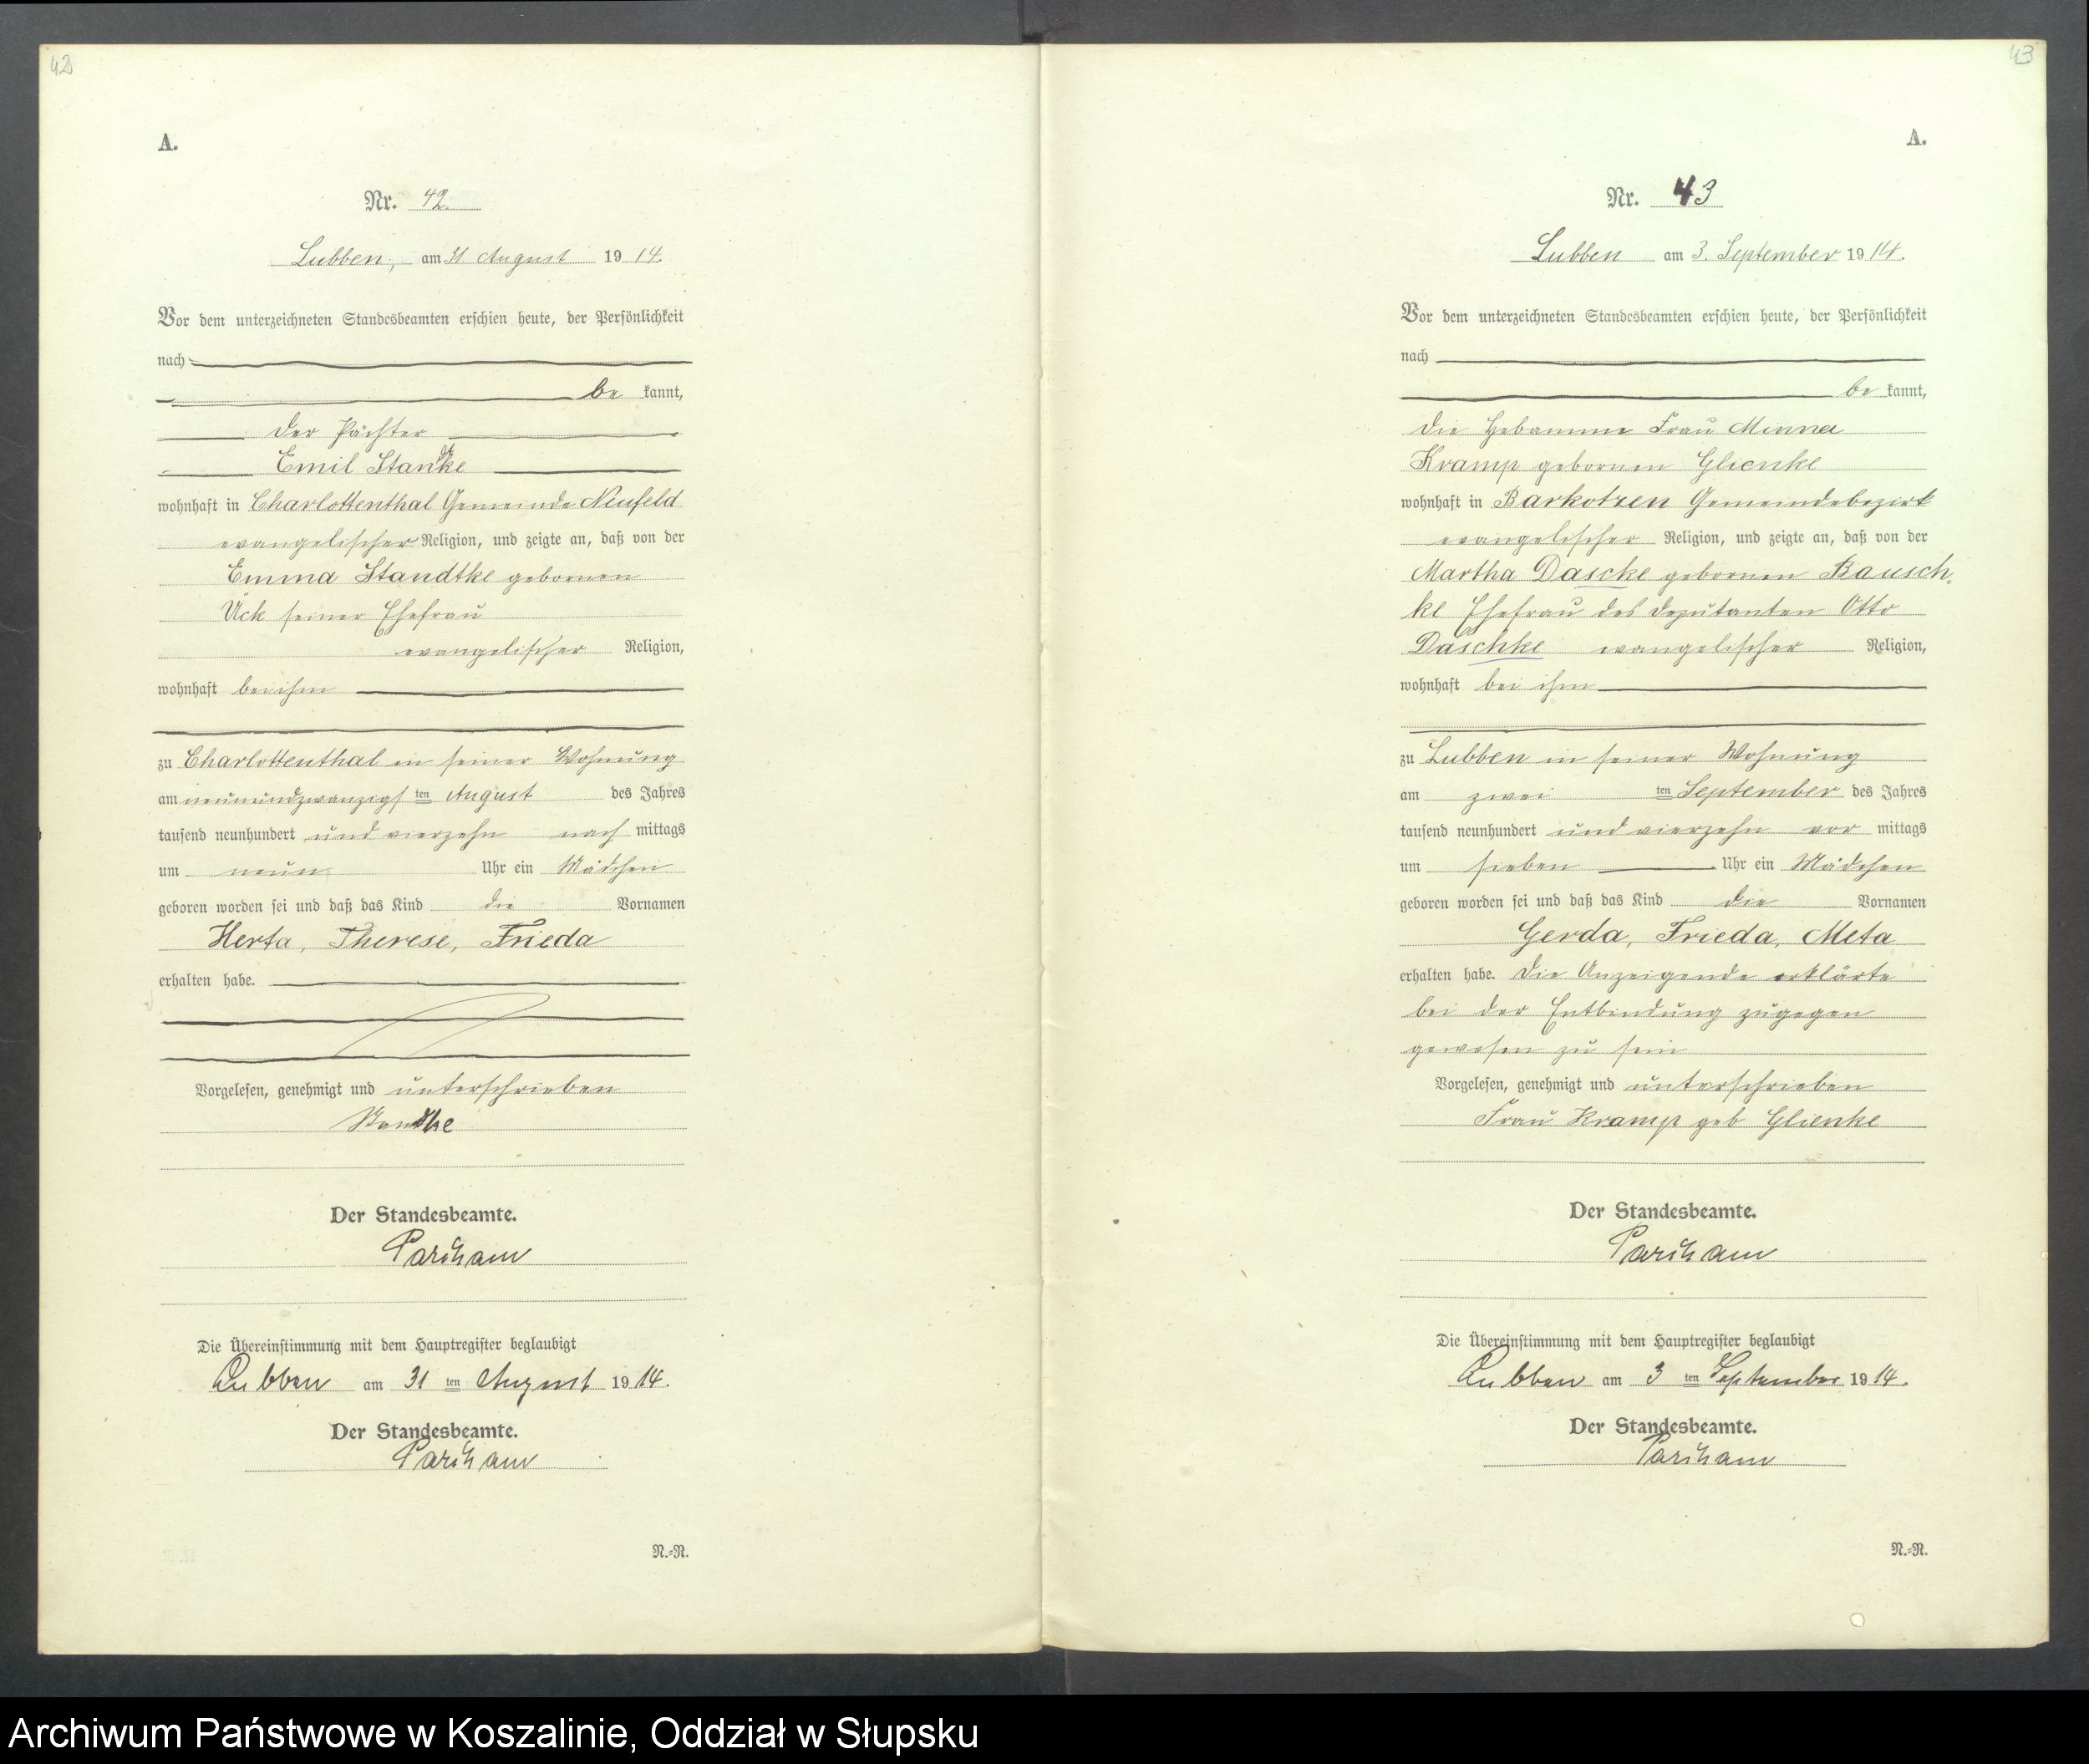 42
A.
Nr. 42.
Lubben, am 31 August 1914.
Vor dem unterzeichneten Standesbeamten erschien heute, der Persönlichkeit
nach
be kannt,
der Pächter
Emil Standtke
wohnhaft in Charlottenthal Gemeinde Neufeld
evangelischer Religion, und zeigte an, daß von der
Emma Standtke geborenen
Ück seiner Ehefrau
evangelischer Religion,
wohnhaft bei ihm
zu Charlottenthal in seiner Wohnung
am neunundzwanzigsten August des Jahres
tausend neunhundert und vierzehn nach mittags
um neun Uhr ein Mädchen
geboren worden sei und daß das Kind die Vornamen
Herta, Therese, Frieda
erhalten habe.
Vorgelesen, genehmigt und unterschrieben
Standtke
Der Standesbeamte.
Die Übereinstimmung mit dem Hauptregister beglaubigt
Lubben am 31 ten August 1914.
Der Standesbeamte.
N.=R.
43
A.
Nr. 43
Lubben am 3. September 1914.
Vor dem unterzeichneten Standesbeamten erschien heute, der Persönlichkeit
nach
be kannt,
die Hebamme Frau Minna
Kramp geborenen Glienke
wohnhaft in Barkotzen Gemeindebezirk
evangelischer Religion, und zeigte an, daß von der
Martha Dascke geborenen Bausch-
ke Ehefrau des Deputanten Otto
Daschke evangelischer Religion,
wohnhaft bei ihm
zu Lubben in seiner Wohnung
am zwei ten September des Jahres
tausend neunhundert und vierzehn vor mittags
um sieben Uhr ein Mädchen
geboren worden sei und daß das Kind die Vornamen
Gerda, Frieda, Meta
erhalten habe. Die Anzeigende erklärte
bei der Entbindung zugegen
gewesen zu sein
Vorgelesen, genehmigt und unterschrieben
Frau Kramp geb Glienke
Der Standesbeamte.
Die Übereinstimmung mit dem Hauptregister beglaubigt
Lubben am 3 ten September 1914.
Der Standesbeamte.
N.=R.
Archiwum Państwowe w Koszalinie, Oddział w Słupsku